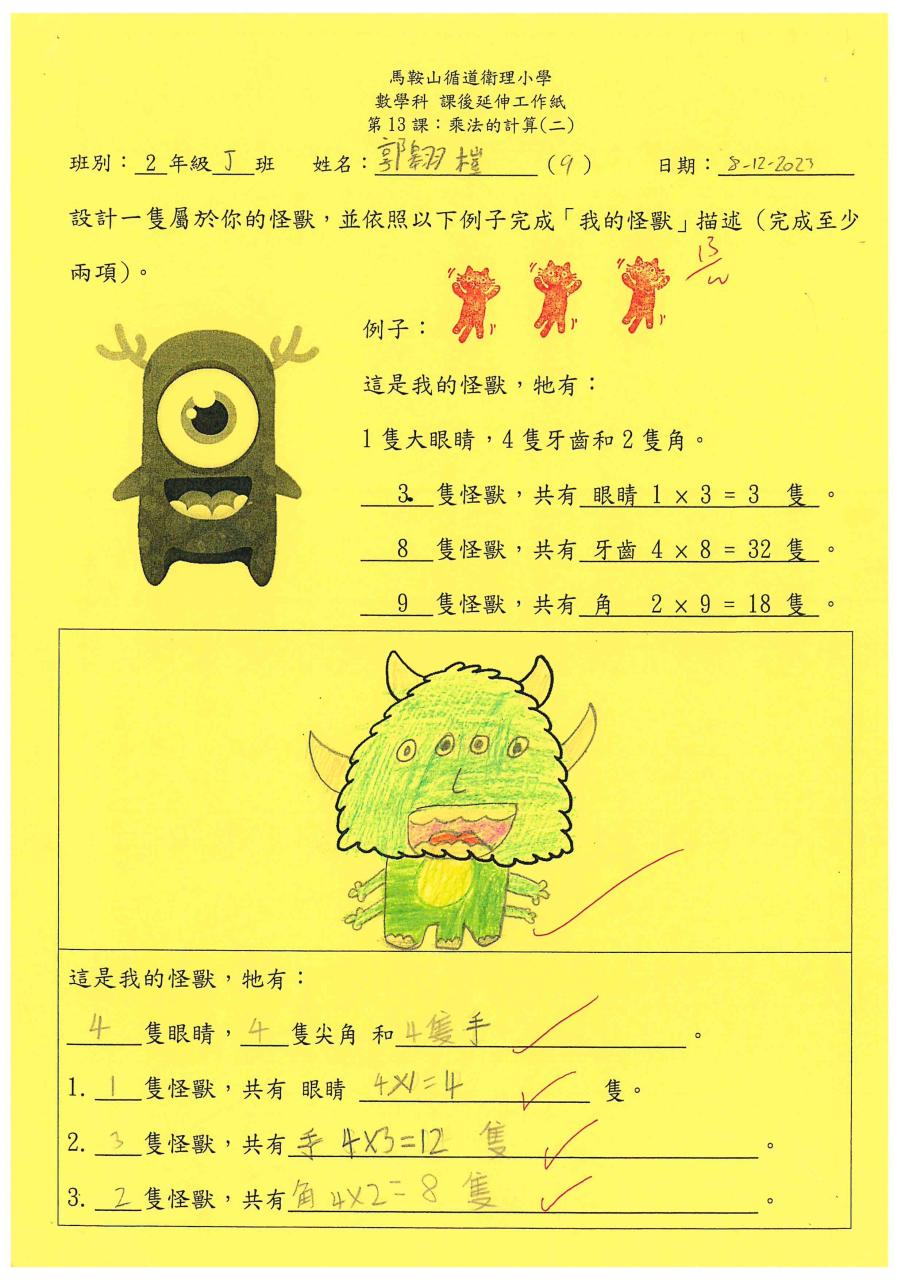 馬鞍山循道衛理小學
數學科 課後延伸工作紙
第 13 課：乘法的計算(二)
班別：2 年級 J 班 姓名：郭翱愷 (9) 日期：8-12-2023
設計一隻屬於你的怪獸，並依照以下例子完成「我的怪獸」描述（完成至少
兩項）。
例子：
這是我的怪獸，牠有：
1 隻大眼睛，4 隻牙齒和 2 隻角。
3 隻怪獸，共有 眼睛 1 × 3 = 3 隻 。
8 隻怪獸，共有 牙齒 4 × 8 = 32 隻 。
9 隻怪獸，共有 角 2 × 9 = 18 隻 。
這是我的怪獸，牠有：
4 隻眼睛，4 隻尖角 和 4隻手 。
1. 1 隻怪獸，共有 眼睛 4×1=4 隻。
2. 3 隻怪獸，共有 手 4×3=12 隻 。
3. 2 隻怪獸，共有 角 4×2=8 隻 。